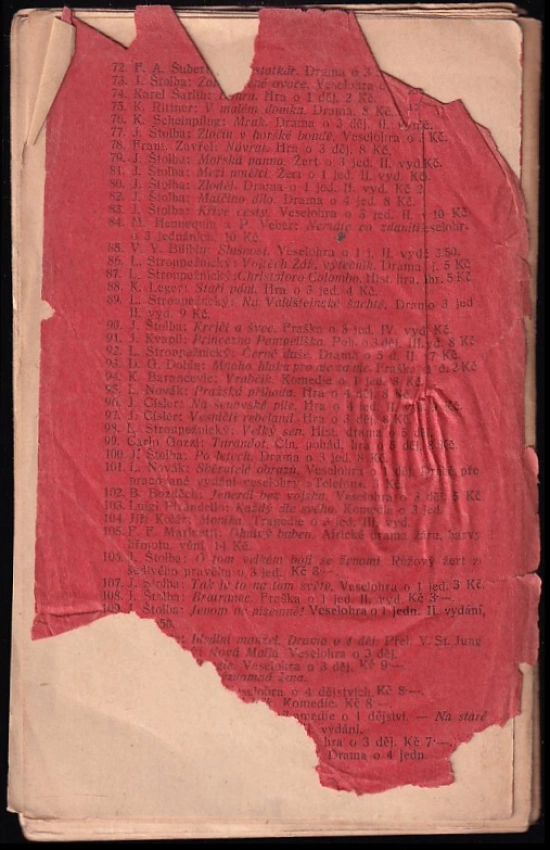 72. F. A. Šubert: statkář. Drama o 3
73. J. Štolba: ovoce. Veselohra o
74. Karel Šarlih: Hra o 1 děj. 2 Kč.
75. K. Rittner: V malém domku. Drama. 8 Kč.
76. K. Scheinpflug: Mrak. Drama o 3 děj. II.
77. J. Štolba: Zločin v horské boudě. Veselohra o Kč.
78. Frant. Zavřel: Návrat. Hra o 3 děj. 8 Kč.
79. J. Štolba: Mořská panna. Žert o 3 jed. II. vyd. Kč.
81. J. Štolba: Mezi umělci. Žert o 1 jed. II. vyd. Kč.
80. J. Štolba: Zloděj. Drama o 1 jed. II. vyd. Kč 2
82. J. Štolba: Maličino dílo. Drama o 4 jed. 8 Kč.
83. J. Štolba: Křivé cesty. Veselohra o 3 jed. II. v 10 Kč.
84. M. Hennequin a P. Veber: Neračte co zdaniti eselohr
o 3 jednáních. 10 Kč.
85. V. V. Bíbl: Slušnost. Veselohra o 1 j. II. vyd. 3.50.
86. L. Stroupežnický: Vojtěch Žák, výtečník. Drama j. 5 Kč
87. L. Stroupežnický: Christoforo Colombo. Hist. hra. 5 Kč
88. K. Leger: Staří páni. Hra o 3 jed. 4 Kč.
89. L. Stroupežnický: Na Valdštejnské šachtě. Drama 3 jed
II. vyd. 9 Kč.
90. J. Štolba: Krejčí a švec. Fraška o 3 jed. IV. vyd. Kč.
91. J. Kvapil: Princezna Pampeliška. Poh. o 3 děj. III. yd. 8 Kč
92. L. Stroupežnický: Černé duše. Drama o 5 d. II. 7 Kč.
93. D. G. Dobin: Mnoho hluku pro nic za nic. Fraška d. 2 Kč
94. K. Barancevic: Vrabčík. Komedie o 1 jed. 3 Kč.
95. L. Novák: Pražská příhoda. Hra o 4 děj. 8 Kč.
96. J. Císler: Na senovské pile. Hra o 4 jed. II. Kč.
97. J. Císler: Vesničtí rebelanti. Hra o 3 děj. 8 Kč.
98. L. Stroupežnický: Velký sen. Hist. drama o 5 děj.
99. Carlo Gozzi: Turandot. Čín. pohád. hra o 5 děj. 8 Kč.
100. J. Štolba: Po letech. Drama o 3 jed. 8 Kč.
101. L. Novák: Sběratelé obrazů. Veselohra o děj. Druhé, pře-
pracované vydání veselohry »Telefon«. 3 Kč.
102. B. Bozděch: Jenerál bez vojska. Veselohra o 3 děj. 5 Kč
103. Luigi Pirandello: Každý dle svého. Komedie o 3 jed.
104. Jiří Kolář: Monika. Tragedie o 3 jed. III. vyd.
105. F. F. Marinetti: Ohnivý buben. Africké drama žáru, barvy
hřmotu, vůní. 14 Kč.
106. J. Štolba: O tom velkém boji se ženami. Růžový žert z
šedivého pravěku o 3 jed. Kč 8—.
107. J. Štolba: Tak je to na tom světě. Veselohra o 1 jed. 3 Kč.
108. J. Štolba: Fraška o 1 jed. II. vyd. Kč 3·—.
109. J. Štolba: Jenom ne písemně! Veselohra o 1 jedn. II. vydání,
50.
Ideální manžel. Drama o 4 děj. Přel. V. St. Jung
Nová Malla. Veselohra o 3 děj.
Veselohra o 3 děj. Kč 9·—.
žena.
selohra o 4 dějstvích. Kč 8·—.
Komedie. Kč 8·—.
omedie o 1 dějství. — Na staré
vydání.
hra o 3 děj. Kč 7·—.
Drama o 4 jedn.